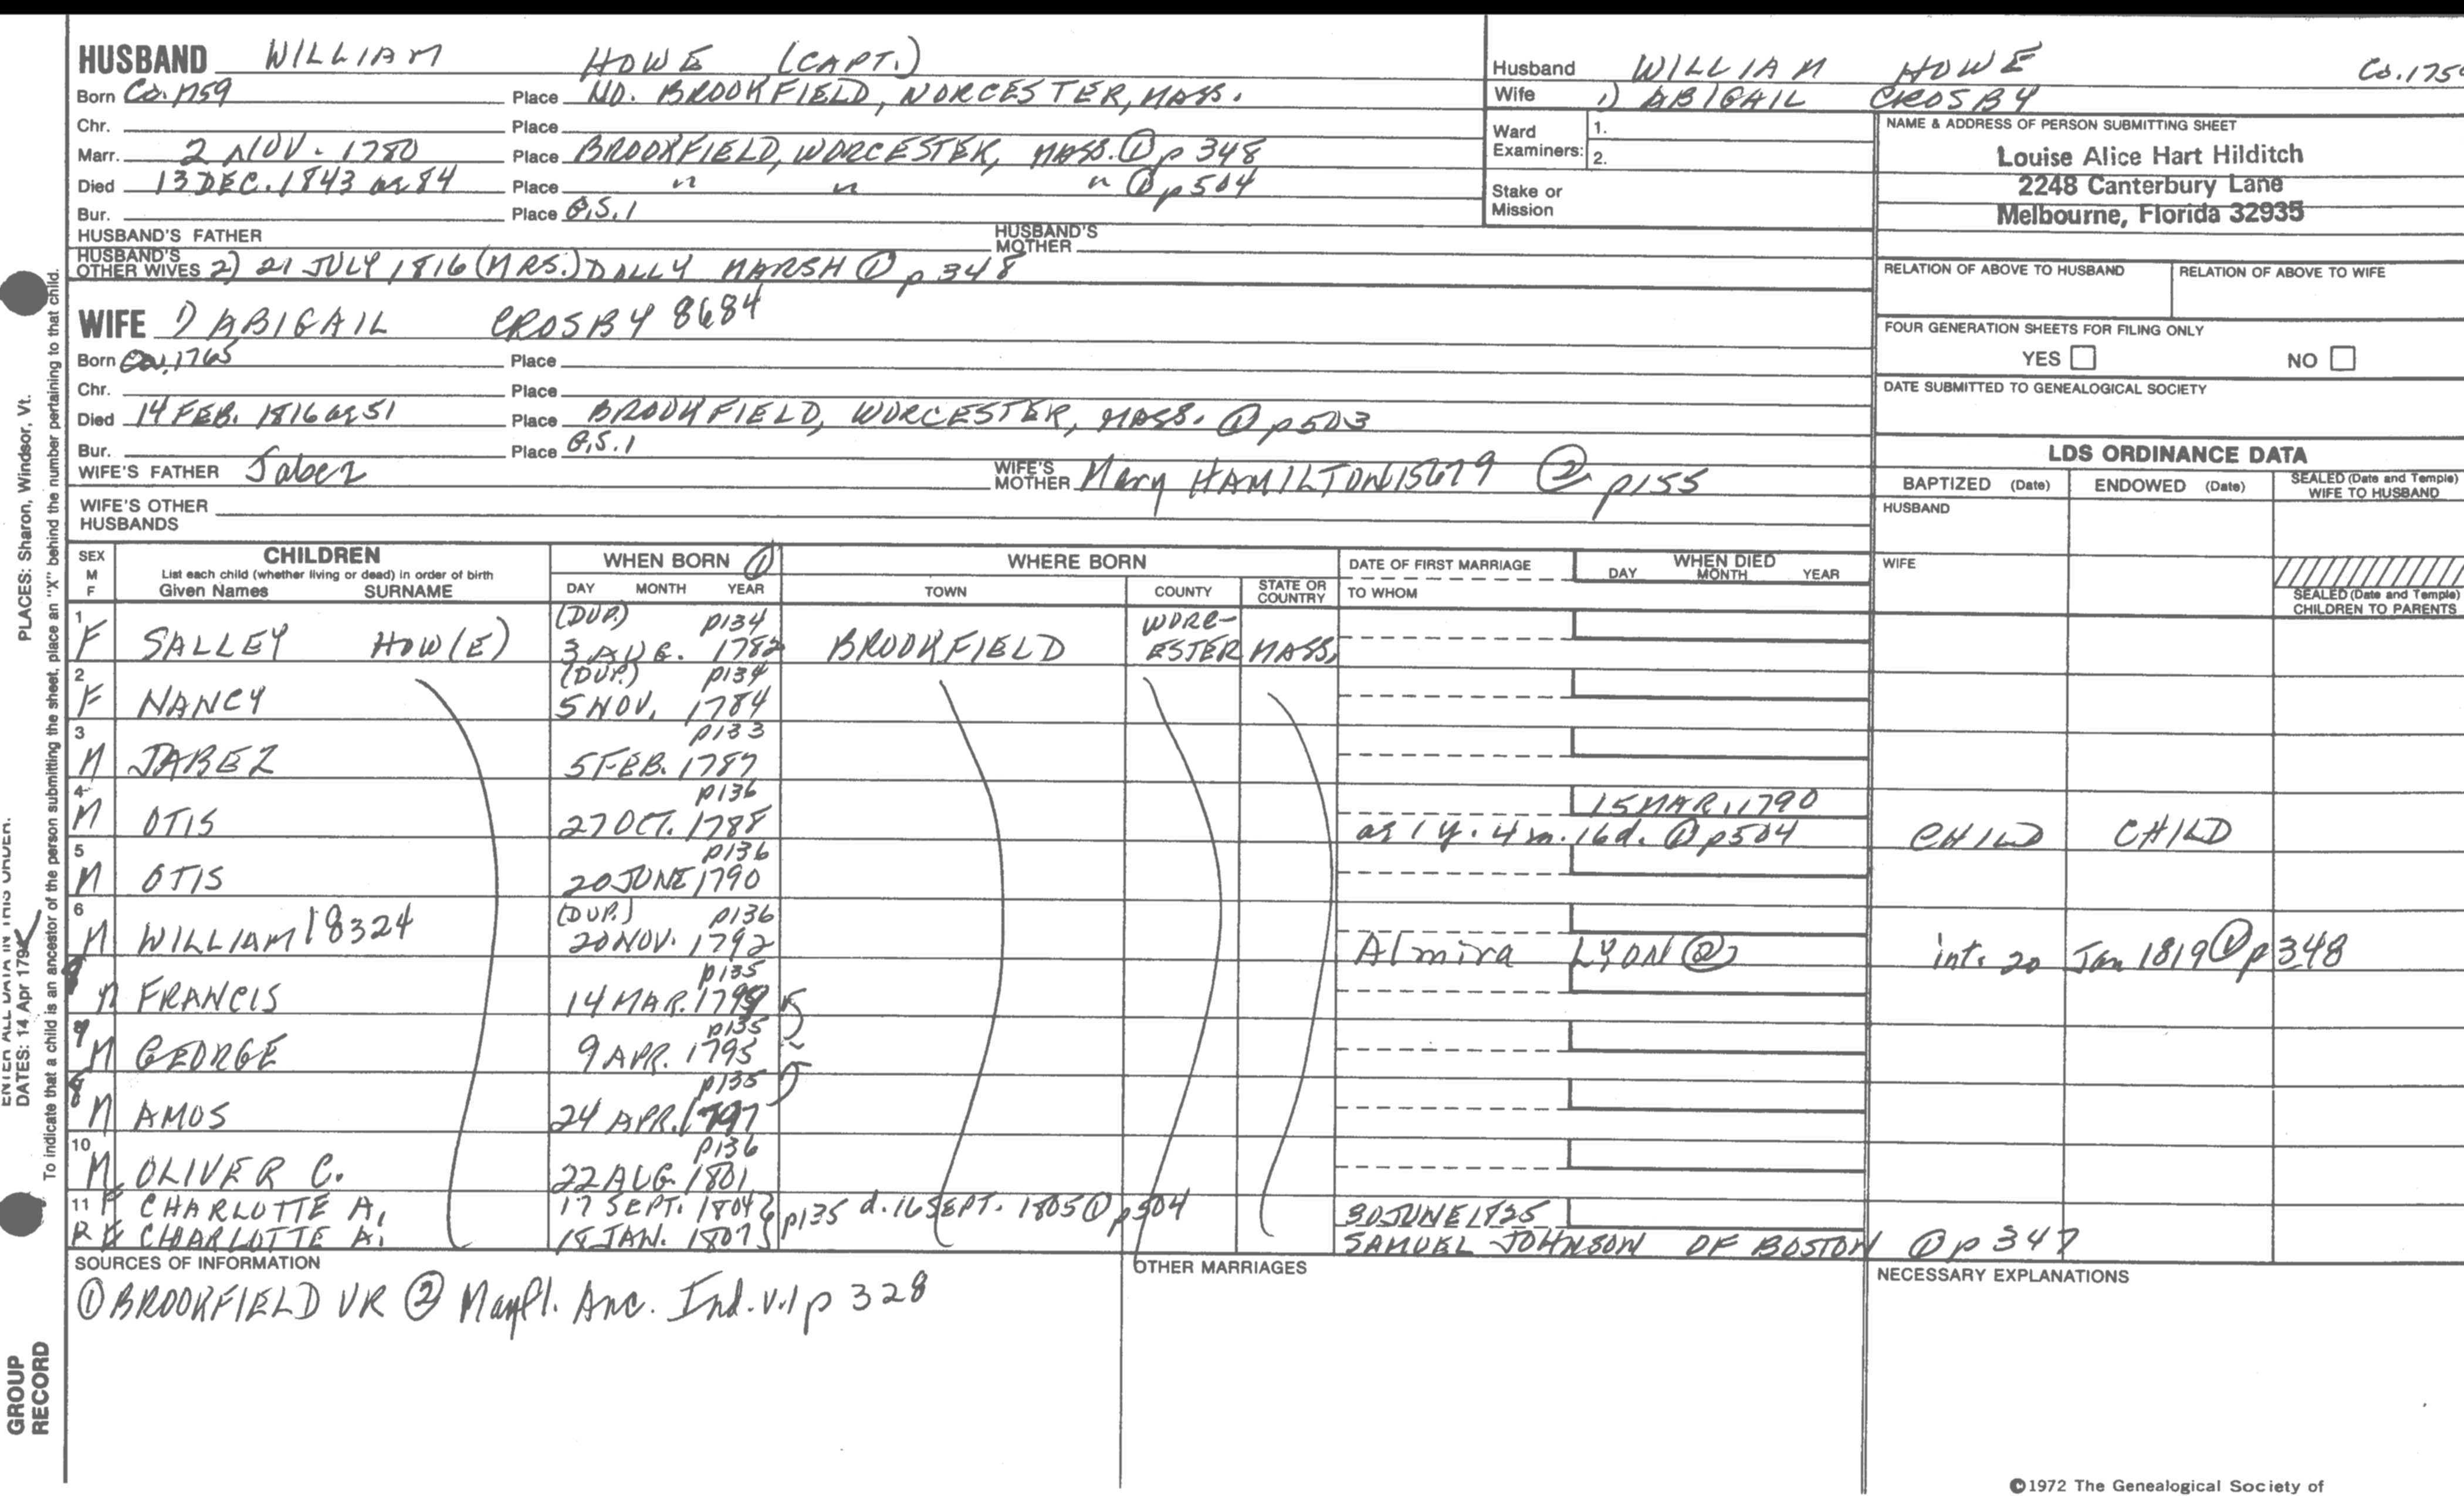 HUSBAND WILLIAM HOWE (CAPT.)
Born Ca. 1759 Place NO. BROOKFIELD, WORCESTER, MASS.
Chr. Place
Marr. 2 NOV. 1780 Place BROOKFIELD, WORCESTER, MASS. ① p 348
Died 13 DEC. 1843 ag 84 Place " " " ① p 504
Bur. Place G.S.1
HUSBAND'S FATHER HUSBAND'S MOTHER
HUSBAND'S OTHER WIVES 2) 21 JULY 1816 (MRS.) DOLLY MARSH ① p 348
WIFE 1) ABIGAIL CROSBY 8684
Born Ca. 1765 Place
Chr. Place
Died 14 FEB. 1816 ag 51 Place BROOKFIELD, WORCESTER, MASS. ① p503
Bur. Place G.S.1
WIFE'S FATHER Jabez WIFE'S MOTHER Mary HAMILTON 15679 ② p155
WIFE'S OTHER HUSBANDS
Husband WILLIAM HOWE Ca. 1759
Wife 1) ABIGAIL CROSBY
Ward Examiners: 1.
2.
Stake or Mission
NAME & ADDRESS OF PERSON SUBMITTING SHEET
Louise Alice Hart Hilditch
2248 Canterbury Lane
Melbourne, Florida 32935
RELATION OF ABOVE TO HUSBAND RELATION OF ABOVE TO WIFE
FOUR GENERATION SHEETS FOR FILING ONLY
YES NO
DATE SUBMITTED TO GENEALOGICAL SOCIETY
LDS ORDINANCE DATA
BAPTIZED (Date) ENDOWED (Date) SEALED (Date and Temple) WIFE TO HUSBAND
HUSBAND
WIFE
SEALED (Date and Temple) CHILDREN TO PARENTS
SEX M F CHILDREN WHEN BORN ① WHERE BORN DATE OF FIRST MARRIAGE WHEN DIED
List each child (whether living or dead) in order of birth
Given Names SURNAME DAY MONTH YEAR TOWN COUNTY STATE OR COUNTRY TO WHOM DAY MONTH YEAR
1 F SALLEY HOW(E) (DUP.) p134 3 AUG. 1782 BROOKFIELD WORC-ESTER MASS.
2 F NANCY (DUP.) p134 5 NOV. 1784
3 M JABEZ p133 5 FEB. 1787
4 M OTIS p136 27 OCT. 1788 15 MAR. 1790 ag 1 y. 4 m. 16 d. ① p504 CHILD CHILD
5 M OTIS p136 20 JUNE 1790
6 M WILLIAM 18324 (DUP.) p136 20 NOV. 1792 Almira LYON ② int. 20 Jan 1819 ① p 348
M FRANCIS p135 14 MAR. 1799
M GEORGE p135 9 APR. 1795
M AMOS p135 24 APR. 1797
10 M OLIVER C. p136 22 AUG. 1801
11 F CHARLOTTE A. 17 SEPT. 1804 p135 d. 16 SEPT. 1805 ① p504 30 JUNE 1825
CHARLOTTE A. 18 JAN. 1807 SAMUEL JOHNSON OF BOSTON ① p 347
SOURCES OF INFORMATION OTHER MARRIAGES NECESSARY EXPLANATIONS
① BROOKFIELD VR ② Mayfl. Anc. Ind. v.1 p 328
©1972 The Genealogical Society of
PLACES: Sharon, Windsor, Vt.
To indicate that a child is an ancestor of the person submitting the sheet, place an "X" behind the number pertaining to that child.
ENTER ALL DATA IN THIS ORDER:
DATES: 14 Apr 1794
GROUP
RECORD